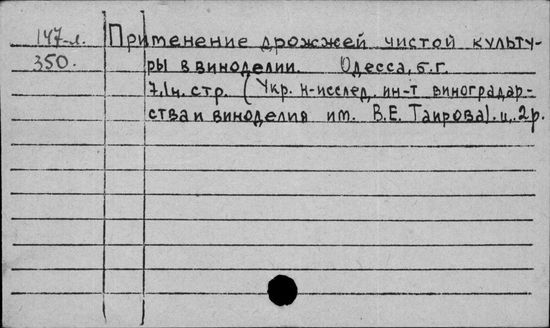 147-л. Применение дрожжей чистой культу-
350. ры в виноделии. Одесса, б.г.
7,1н. стр. (Укр. н-исслед. ин-т виноградар-
ства и виноделия им. В.Е. Таирова). ц. 2р.